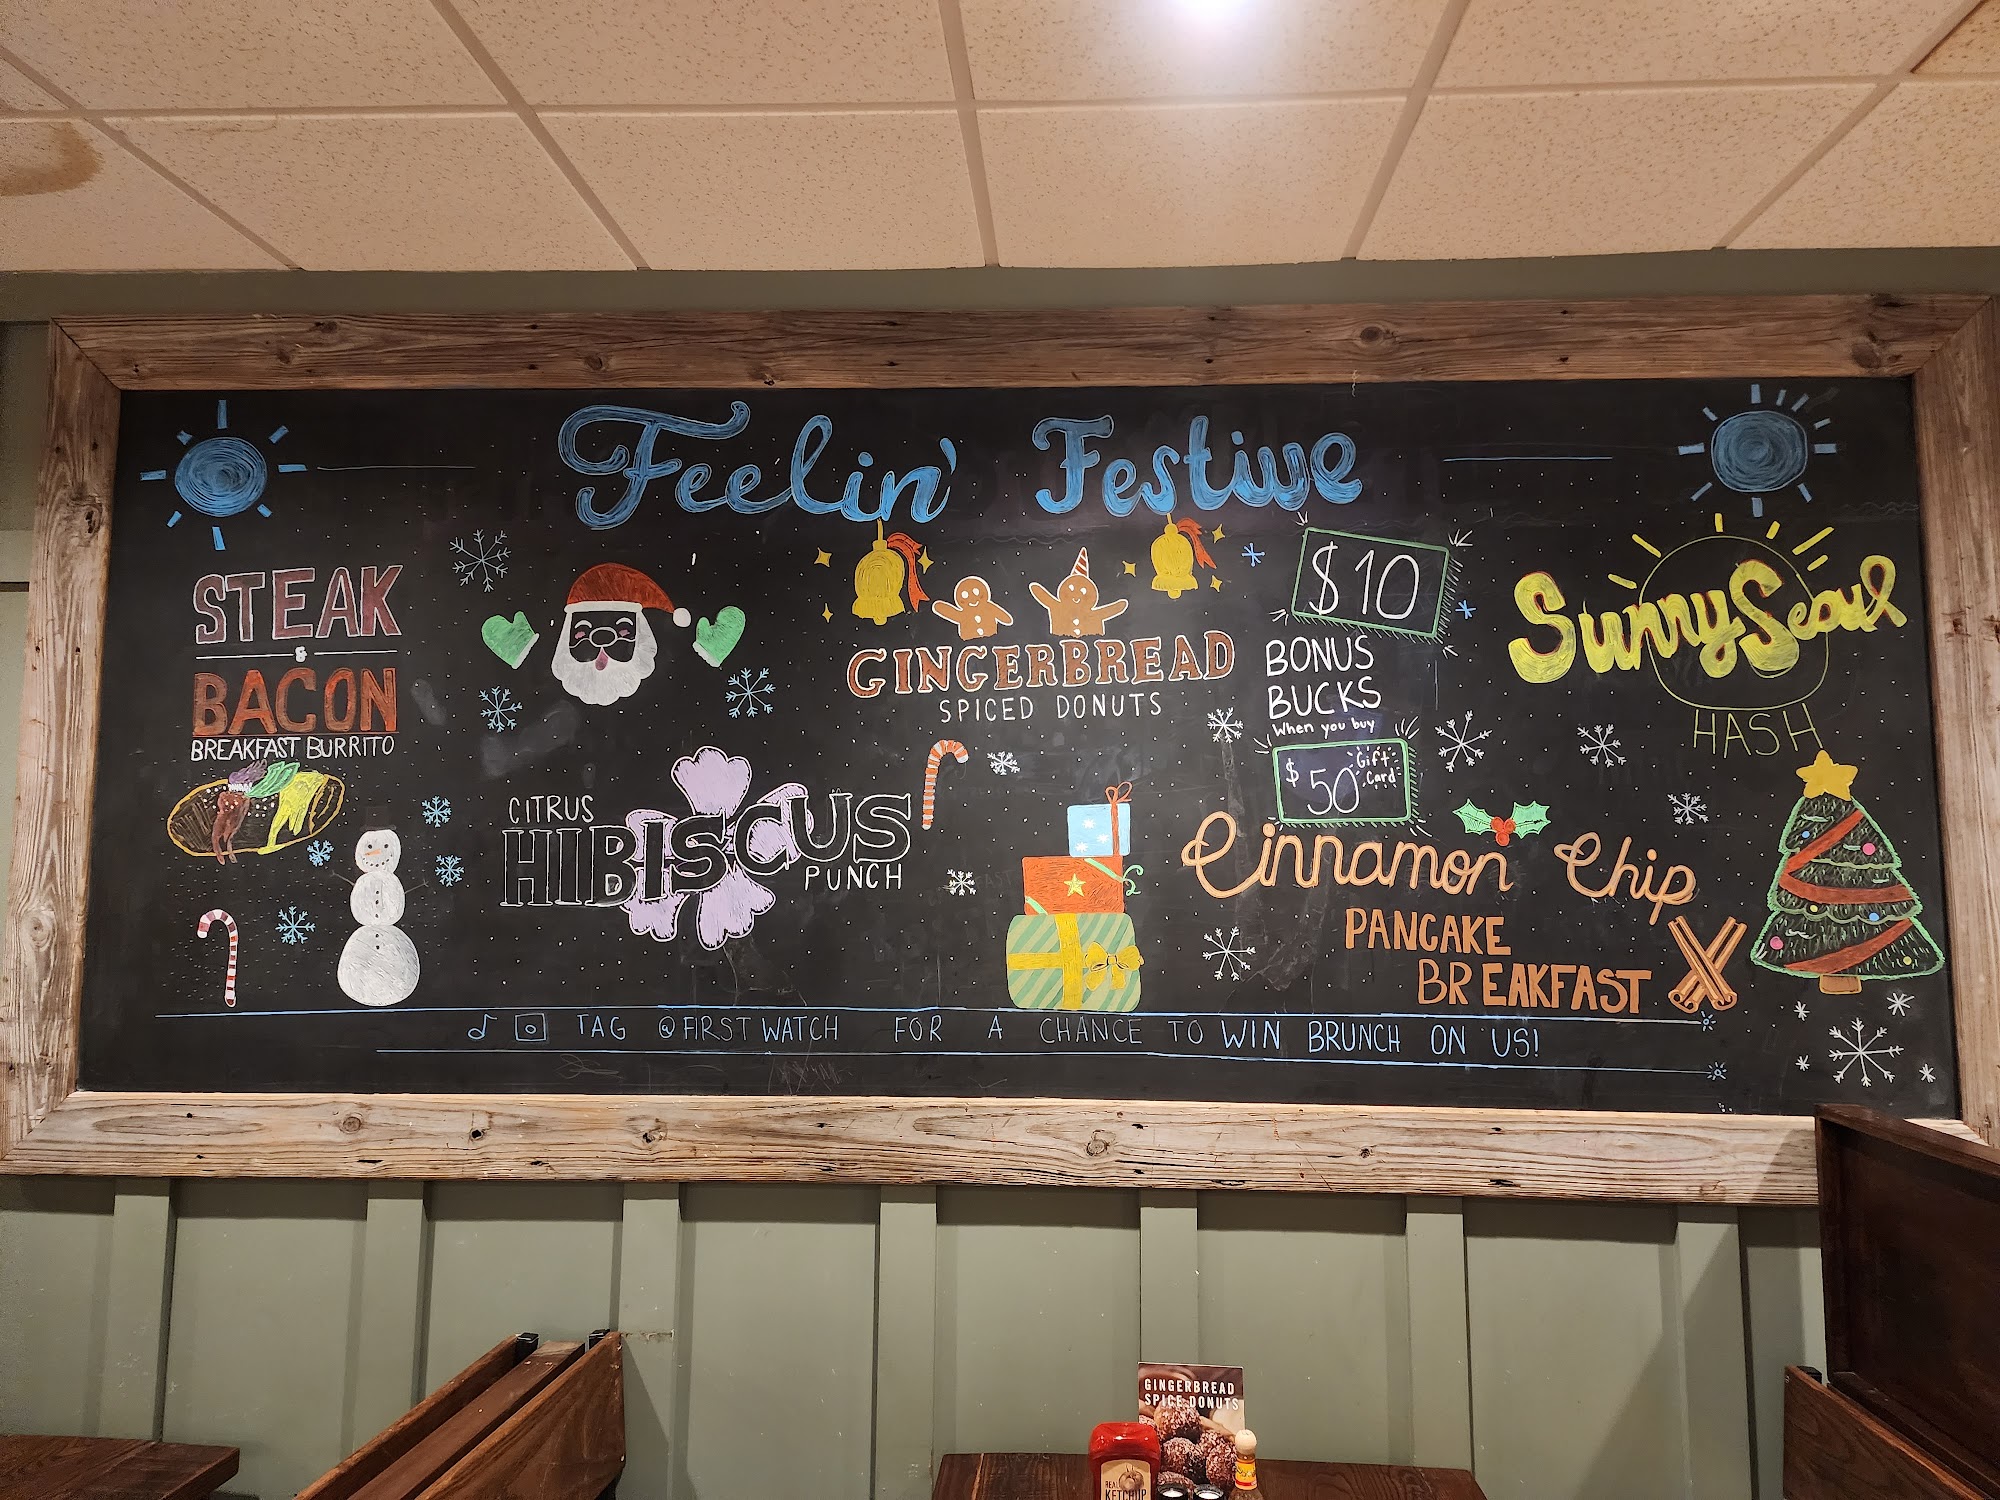 Feelin' Festive
STEAK
&
BACON
BREAKFAST BURRITO
GINGERBREAD
SPICED DONUTS
$10
BONUS
BUCKS
When you buy
$50 Gift
Card
Sunny Seoul
HASH
CITRUS
HIBISCUS
PUNCH
Cinnamon Chip
PANCAKE
BREAKFAST
TAG @FIRSTWATCH FOR A CHANCE TO WIN BRUNCH ON US!
GINGERBREAD
SPICE DONUTS
REAL
KETCHUP